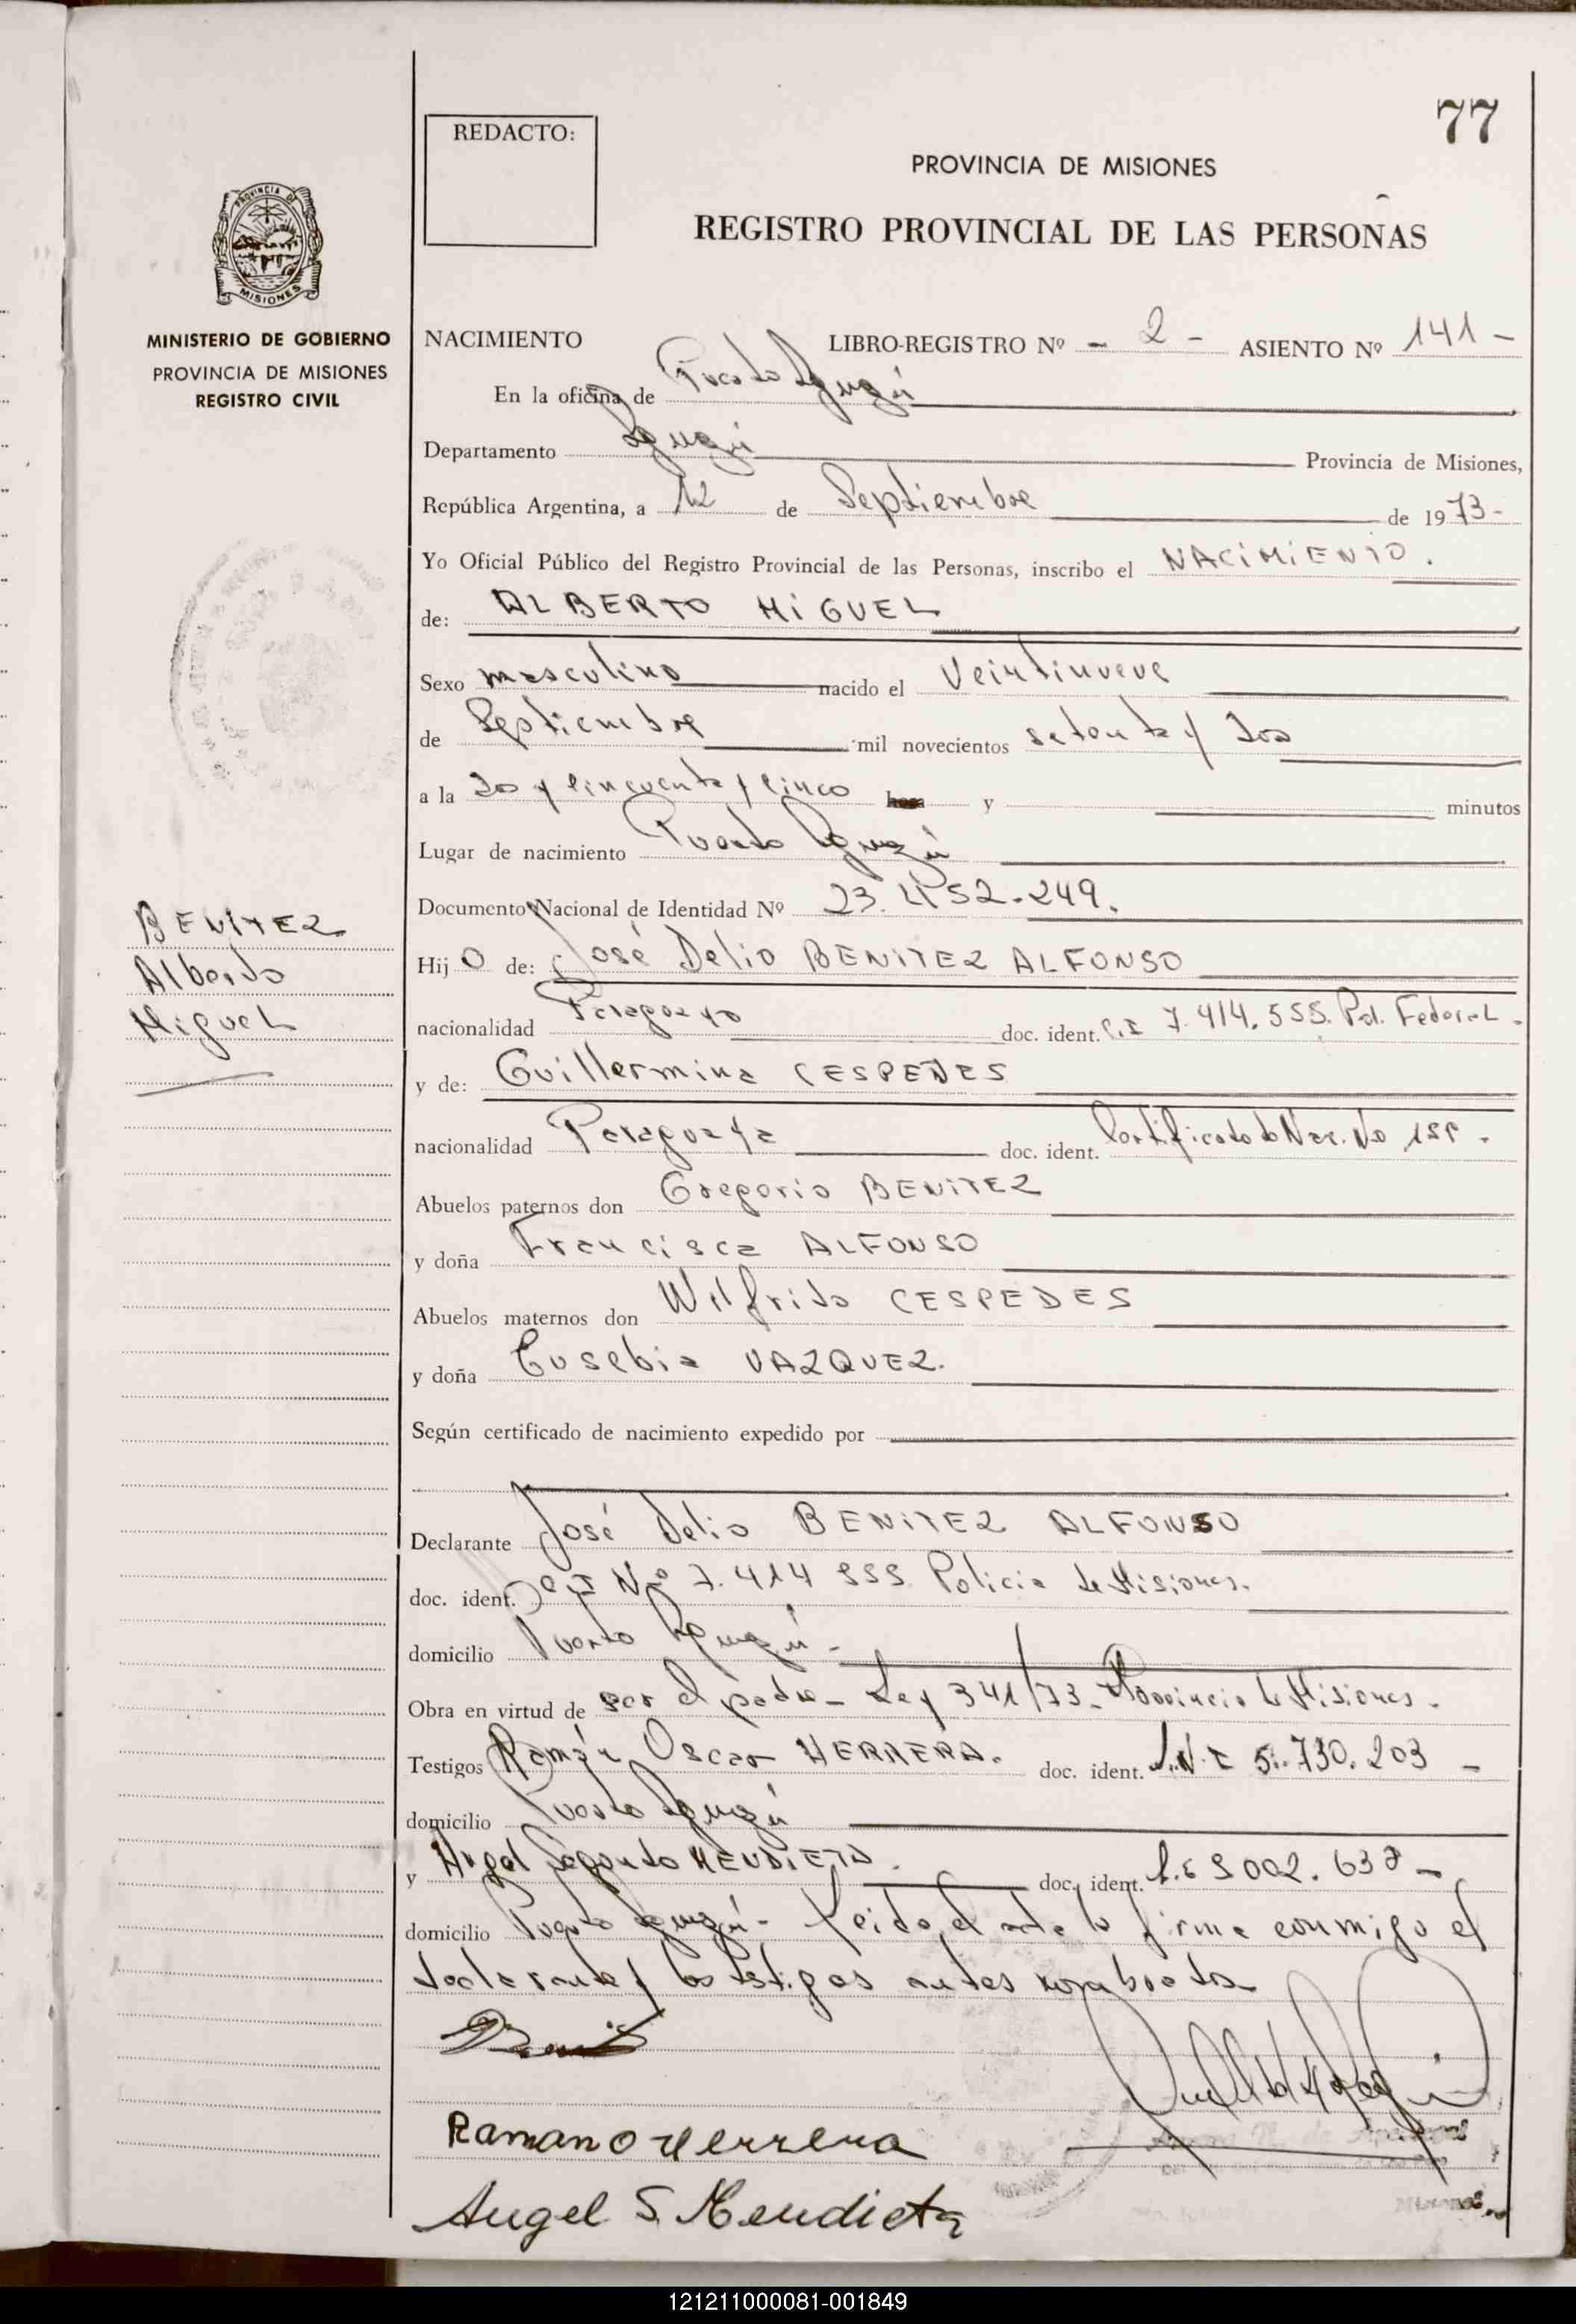 77
REDACTO:
PROVINCIA DE MISIONES
REGISTRO PROVINCIAL DE LAS PERSONAS
PROVINCIA DE
MISIONES
MINISTERIO DE GOBIERNO
PROVINCIA DE MISIONES
REGISTRO CIVIL
NACIMIENTO LIBRO-REGISTRO Nº - 2 - ASIENTO Nº 141 -
En la oficina de Puerto Iguazú
Departamento Iguazú Provincia de Misiones,
República Argentina, a 12 de Septiembre de 1973-
Yo Oficial Público del Registro Provincial de las Personas, inscribo el NACIMIENTO.
de: ALBERTO MIGUEL
Sexo masculino nacido el Veintinueve
de Septiembre mil novecientos setenta y dos
a la dos y cincuenta y cinco hora y minutos
Lugar de nacimiento Puerto Iguazú
Documento Nacional de Identidad Nº 23.452.249.
BENITEZ
Alberto
Miguel
Hijo de: José Delio BENITEZ ALFONSO
nacionalidad Paraguayo doc. ident. C.I 7.414.555. Pol. Federal -
y de: Guillermina CESPEDES
nacionalidad Paraguaya doc. ident. Certificado de Nac. No
Abuelos paternos don Gregorio BENITEZ
y doña Francisca ALFONSO
Abuelos maternos don Wilfrido CESPEDES
y doña Eusebia VAZQUEZ.
Según certificado de nacimiento expedido por
Declarante José Delio BENITEZ ALFONSO
doc. ident. C.I Nº 7.414 555 Policia de Misiones.
domicilio Puerto Iguazú -
Obra en virtud de ser el padre - Ley 341/73 - Provincia de Misiones -
Testigos Ramón Oscar HERRERA. doc. ident. 5.730.203 -
domicilio Puerto Iguazú
y Angel Segundo MENDIETA. doc. ident. 002.638 -
domicilio Puerto Iguazú - Leida el acta la firma conmigo el
declarante y los testigos antes nombrados
Ramon O Herrera
Angel S. Mendieta
121211000081-001849